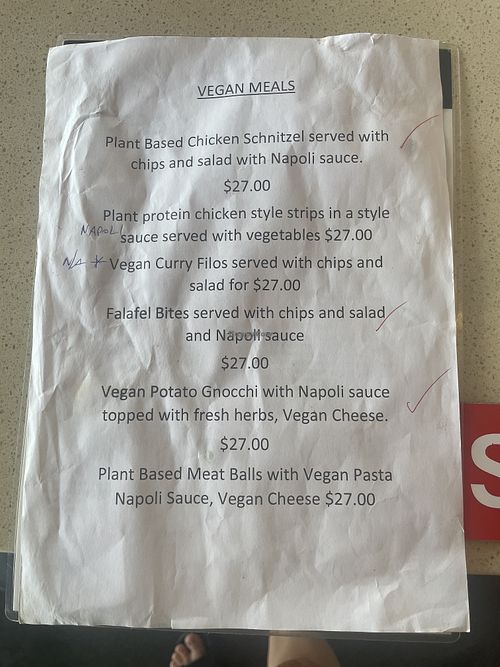 VEGAN MEALS
Plant Based Chicken Schnitzel served with
chips and salad with Napoli sauce.
$27.00
Plant protein chicken style strips in a style
NAPOLI
sauce served with vegetables $27.00
N/A * Vegan Curry Filos served with chips and
salad for $27.00
Falafel Bites served with chips and salad
and Napoli sauce
$27.00
Vegan Potato Gnocchi with Napoli sauce
topped with fresh herbs, Vegan Cheese.
$27.00
Plant Based Meat Balls with Vegan Pasta
Napoli Sauce, Vegan Cheese $27.00
S